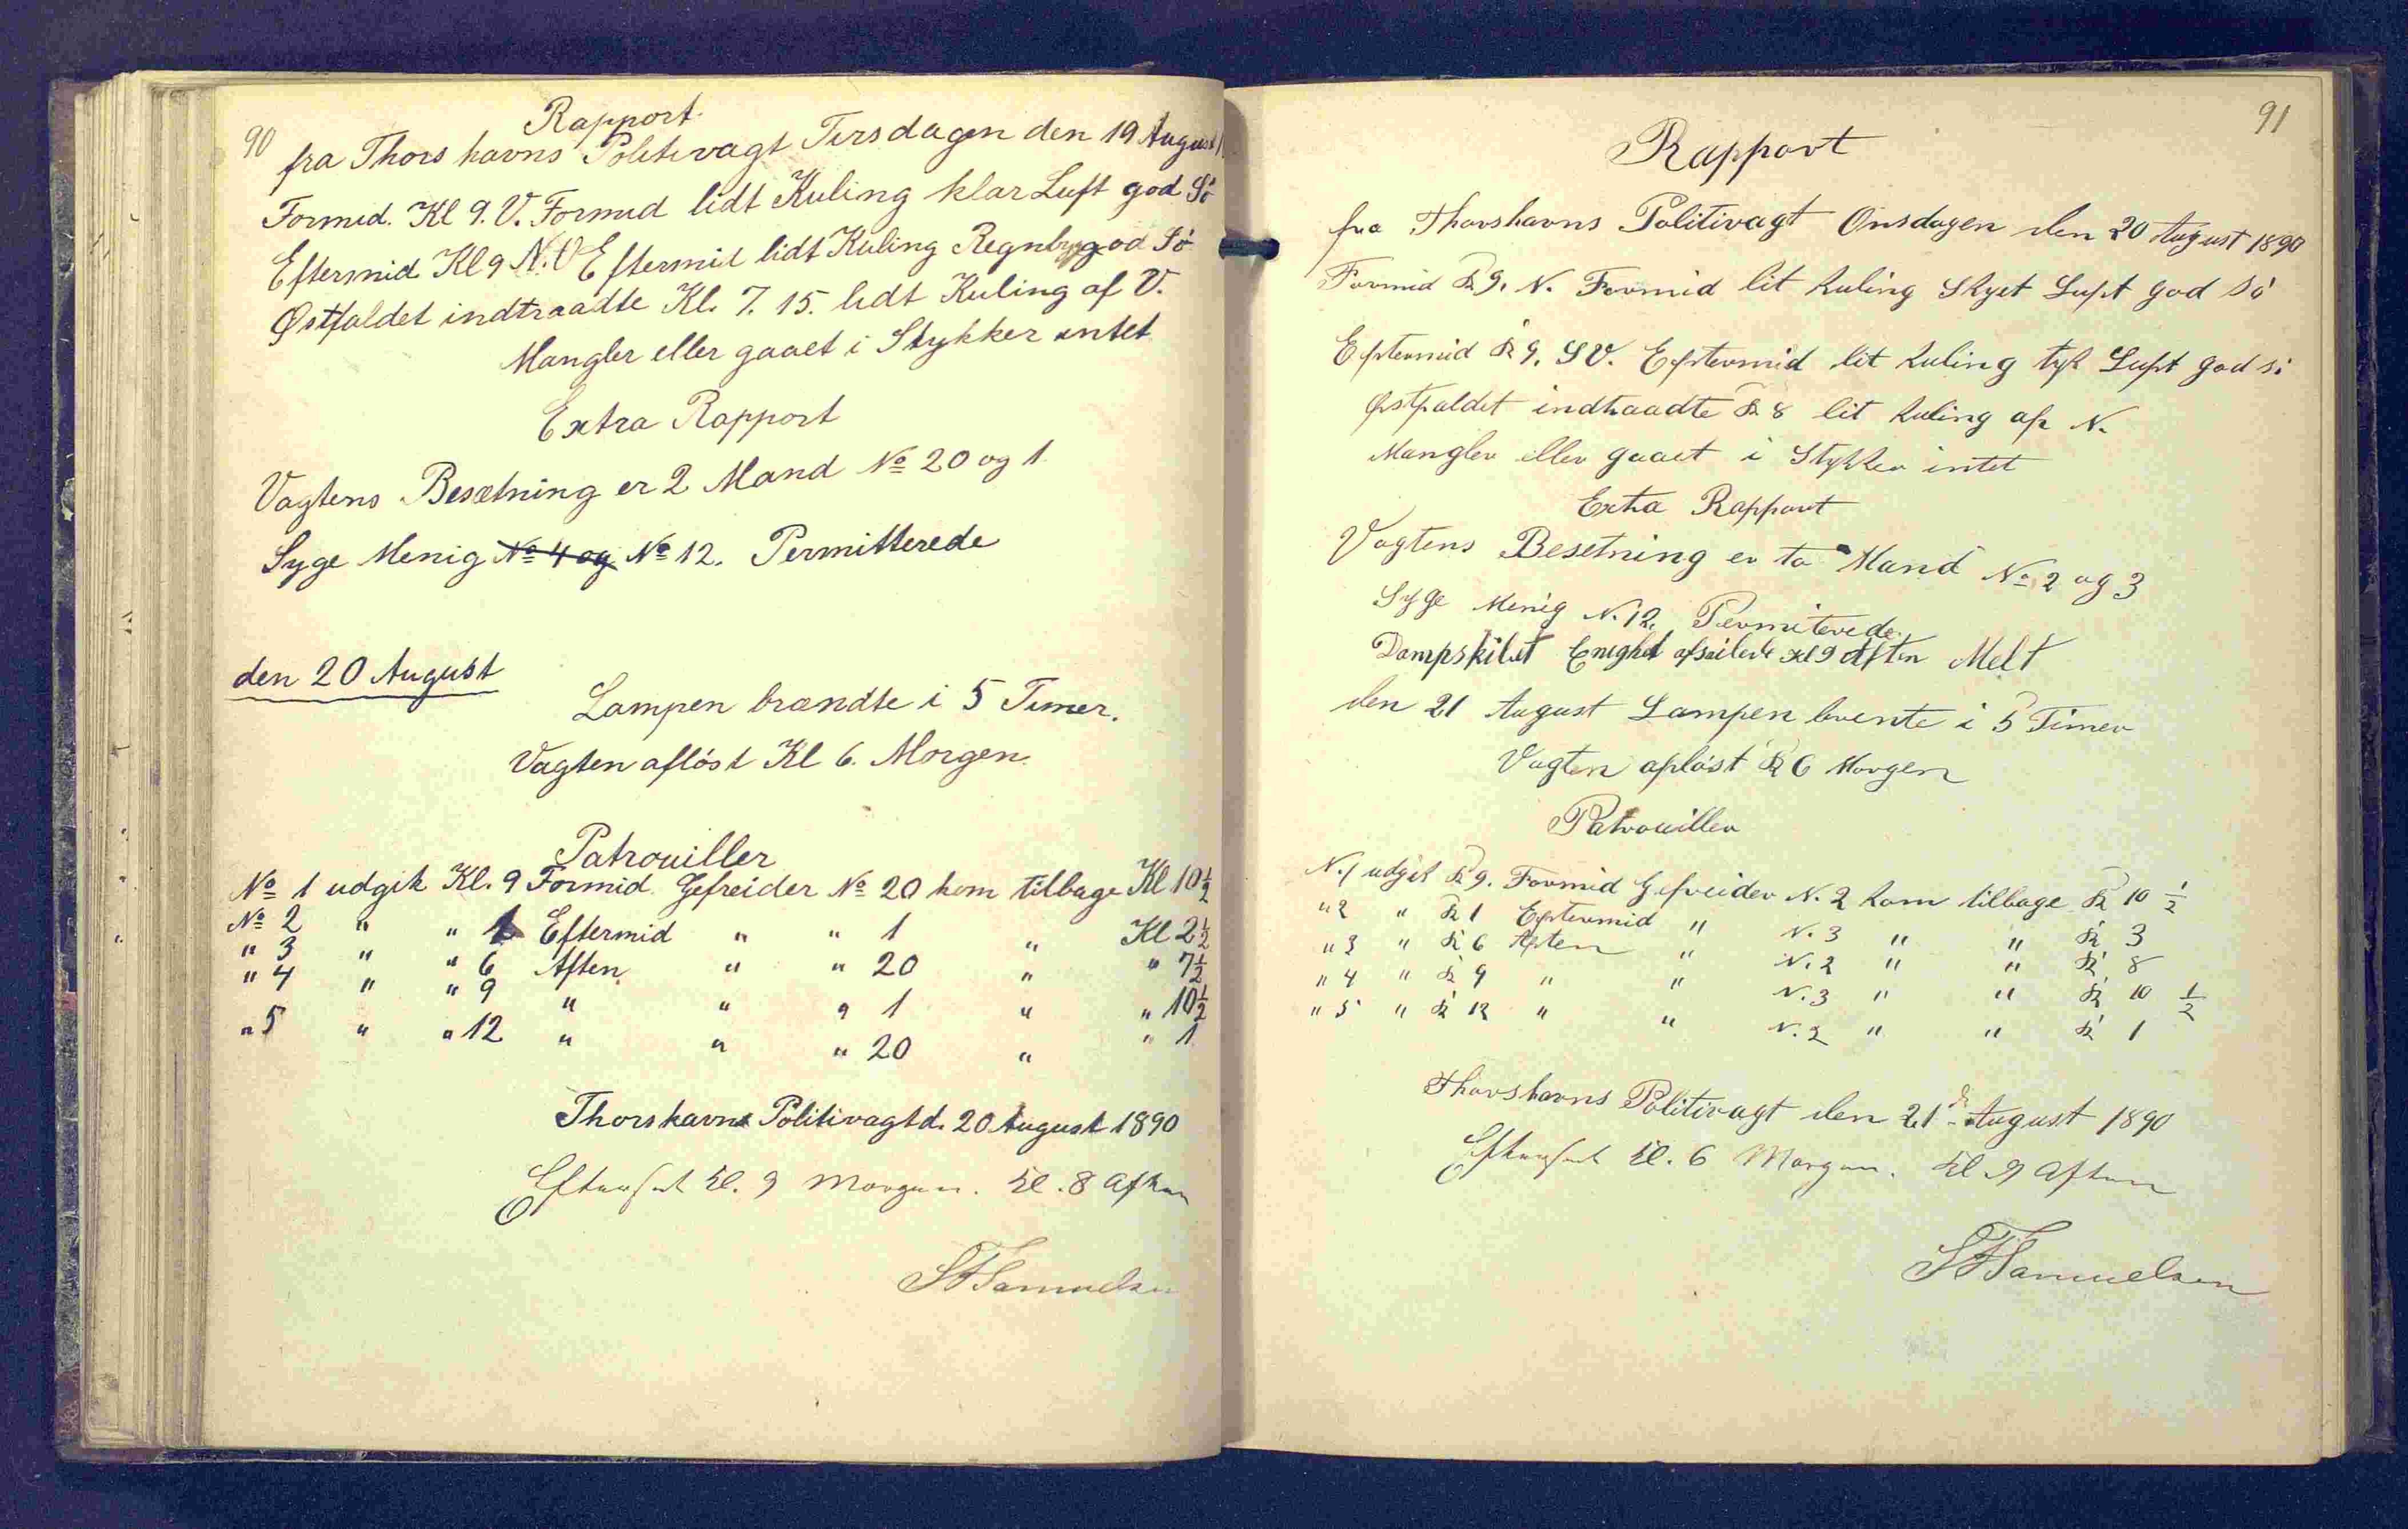 90
Rapport
fra Thorshavns Politivagt Tirsdagen den 19 August
Formid. Kl 9. V. Formid lidt Kuling klar Luft god Sö
Eftermid Kl 9 N.V Eftermid lidt Kuling Regnbyg god Sö
Østfaldet indtraadte Kl. 7. 15. lidt Kuling af V.
Mangler eller gaaet i Stykker intet
Extra Rapport
Vagtens Besætning er 2 Mand No 20 og 1
Syge Menig No 4 og No 12. Permitterede
den 20 August
Lampen brændte i 5 Timer.
Vagten aflöst Kl 6. Morgen.
Patrouiller
No 1 udgik Kl. 9 Formid. Gefreider No 20 kom tilbage Kl 10 1/2
No 2 " " 1 Eftermid " " 1 " Kl 2 1/2
" 3 " " 6 Aften " " 20 " " 7 1/2
" 4 " " 9 " " " 1 " " 10 1/2
" 5 " " 12 " " " 20 " " 1
Thorshavns Politivagt d. 20 August 1890
Efterseet Kl. 9 Morgen. Kl. 8 Aften
SFSamuelsen
91
Rapport
fra Thorshavns Politivagt Onsdagen den 20 August 1890
Formid Kl 9. N. Formid lit kuling Skyet Luft god Sö
Eftermid Kl 9. SV. Eftermid lit kuling tyk Luft god sö
Østfaldet indtraadte Kl 8 lit kuling af N.
Mangler eller gaaet i Stykker intet
Extra Rapport
Vagtens Besetning er to Mand No 2 og 3
Syge Menig N. 12. Permiterede
Dampskibet Enighed afseilede Kl 9 Aften Melt
den 21 August Lampen brente i 5 Timer
Vagten aflöst Kl 6 Morgen
Patrouiller
N. 1 udgik Kl 9. Formid Gefreider N. 2 kom tilbage Kl 10 1/2
" 2 " Kl 1 Eftermid " N. 3 " " Kl 3
" 3 " Kl 6 Aften " N. 2 " " Kl 8
" 4 " Kl 9 " " N. 3 " " Kl 10 1/2
" 5 " Kl 12 " " N. 2 " " Kl 1
Thorshavns Politivagt den 21 August 1890
Efterseet Kl. 6 Morgen. Kl 9 Aften
SFSamuelsen